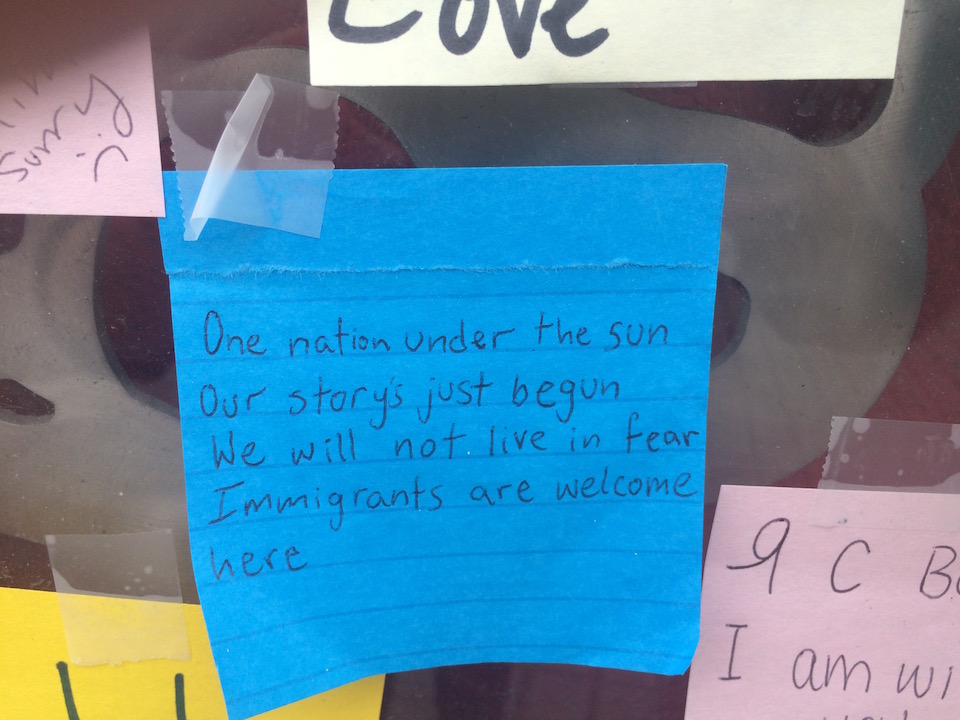 Love
surry
One nation under the sun
Our story's just begun
We will not live in fear
Immigrants are welcome
here
9 C
I am